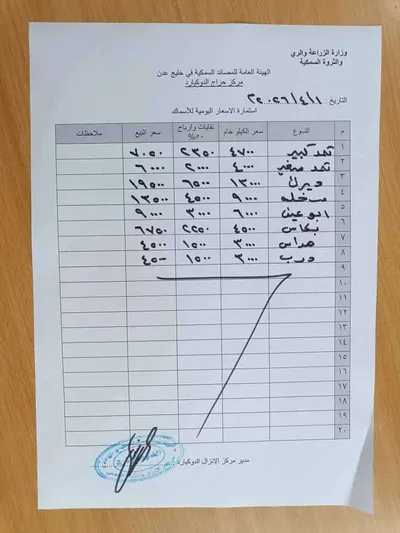 وزارة الزراعة والري
والثروة السمكية
الهيئة العامة للمصائد السمكية في خليج عدن
مركز حراج الدوكيارد
التاريخ : ٢٠٢٦/٤/١
استمارة الاسعار اليومية للأسماك
م النوع سعر الكيلو خام نفايات وارباح ٥٠% سعر البيع ملاحظات
١ ثمد كبير ٤٧٠٠ ٢٣٥٠ ٧٠٥٠
٢ ثمد صغير ٤٠٠٠ ٢٠٠٠ ٦٠٠٠
٣ ديرك ١٣٠٠٠ ٦٥٠٠ ١٩٥٠٠
٤ سخله ٩٠٠٠ ٤٥٠٠ ١٣٥٠٠
٥ ابو عين ٦٠٠٠ ٣٠٠٠ ٩٠٠٠
٦ بكاس ٤٥٠٠ ٢٢٥٠ ٦٧٥٠
٧ هداس ٣٠٠٠ ١٥٠٠ ٤٥٠٠
٨ درب ٣٠٠٠ ١٥٠٠ ٤٥٠٠
٩
١٠
١١
١٢
١٣
١٤
١٥
١٦
١٧
١٨
١٩
٢٠
مدير مركز الانزال الدوكيارد